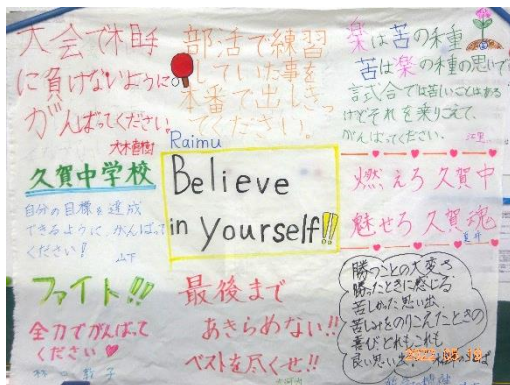 大会で相手
に負けないように
がんばってください。
大木直樹
部活で練習
していた事を
本番で出しきっ
てください。
Raimu
楽は苦の種
苦は楽の種の思いで
試合では苦しいことはある
けどそれを乗りこえて、
がんばってください。
久賀中学校
自分の目標を達成
できるように、がんばって
ください!
山下
Believe
in yourself!!
燃えろ久賀中
魅せろ久賀魂
ファイト!!
全力でがんばって
ください
最後まで
あきらめない!!
ベストを尽くせ!!
勝つことの大変さ
勝ったときに感じる
苦しかった思い出、
苦しみをのりこえたときの
喜びどれもこれも
良い思い出